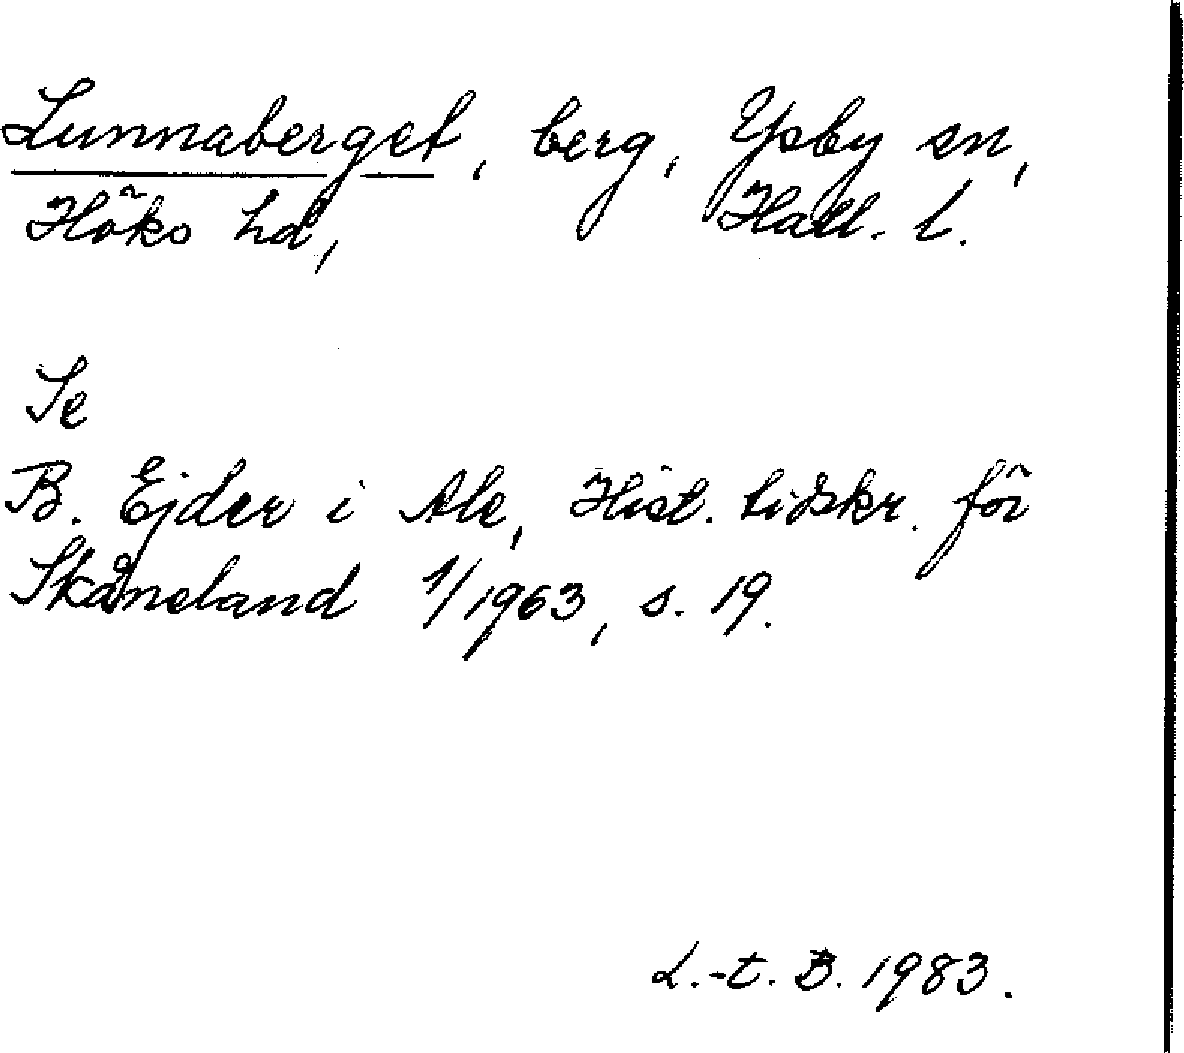 Lunnaberget, berg, Ysby sn,
Höks hd, Hall. l.
Se
B. Ejder i Ale, Hist. tidskr. för
Skåneland 1/1963, s. 19.
L.-t. B. 1983.